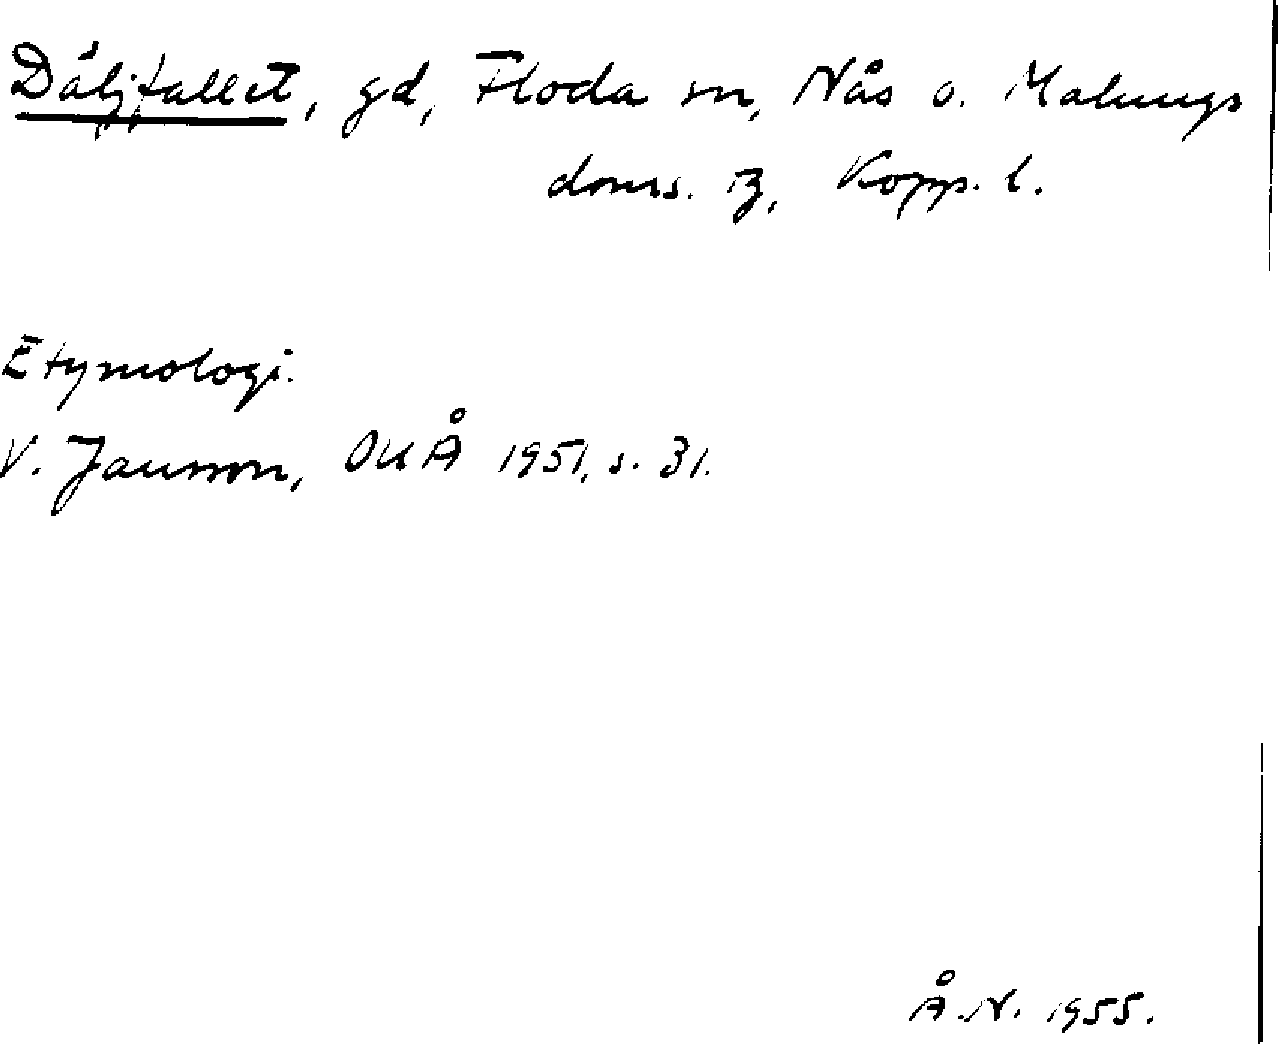 Däljfallet, gd, Floda sn, Nås o. Malungs
doms. tg, Kopp. l.
Etymologi.
V. Jansson, OUÅ 1951, s. 31.
Å.N. 1955.